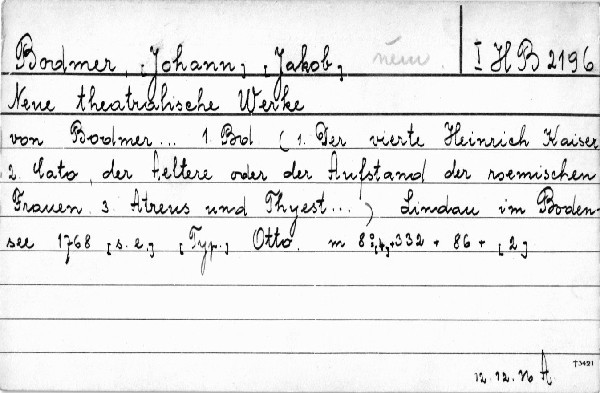 Bodmer, [Johann] [Jakob] něm. I H B 2196
Neue theatralische Werke
von Bodmer... 1. Bd (1. Der vierte Heinrich Kaiser
2. Cato, der Aeltere oder der Aufstand der roemischen
Frauen 3. Atreus und Thyest...) Lindau im Boden-
see 1768 [s. e.] [Typ.] Otto. m 8° [4]+332 + 86 + [2]
12. 12. A
T3421